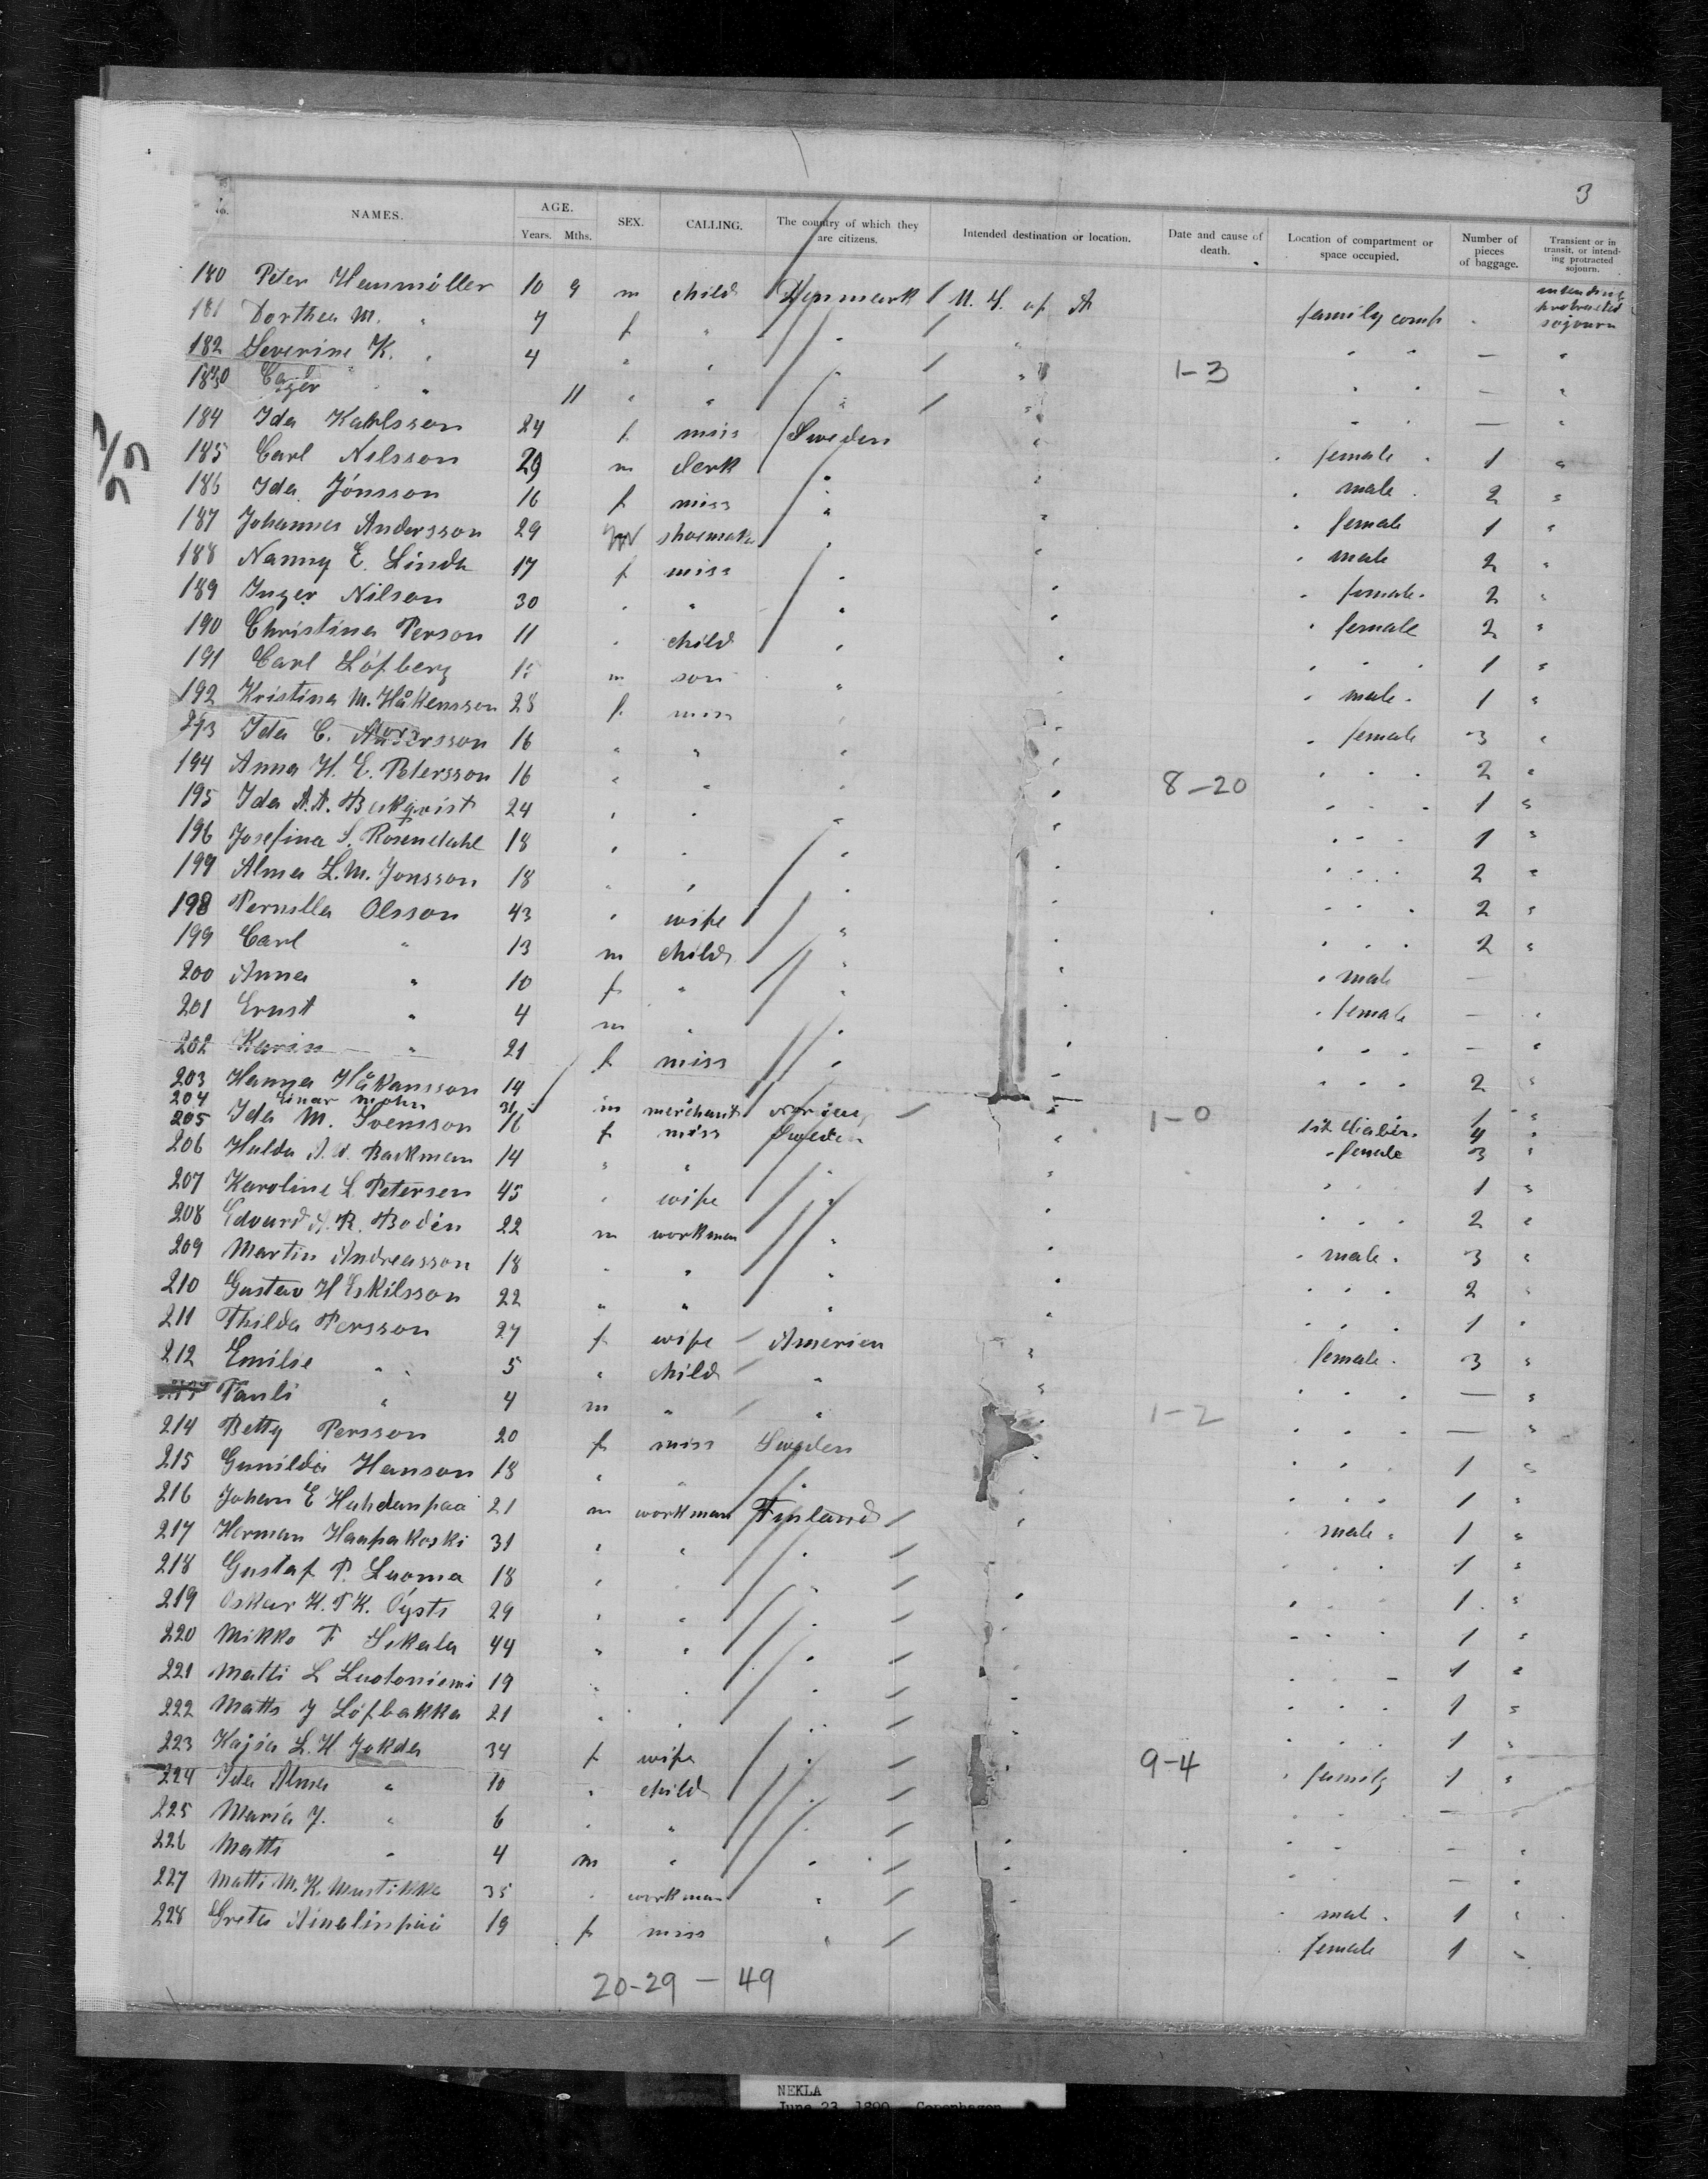 3
No. NAMES. AGE. Years. Mths. SEX. CALLING. The country of which they are citizens. Intended destination or location. Date and cause of death. Location of compartment or space occupied. Number of pieces of baggage. Transient or in transit, or intending protracted sojourn.
180 Peter Hammöller 10 9 m child Denmark U. S. of A family comp intending protracted sojourn
181 Dorthea M. " 7 f " " " " " — "
182 Severine K. " 4 " " " " 1-3 " " — "
183 " 11 " " " " " " — "
184 Ida Kahlsson 24 f miss Sweden " " female " 1 "
185 Carl Nilsson 29 m clerk " " " male " 2 "
186 Ida Jönsson 16 f miss " " " female 1 "
187 Johannes Andersson 29 m shoemaker " " " male 2 "
188 Nanny E. Linda 17 f miss " " " female " 2 "
189 Inger Nilson 30 " " " " " female 2 "
190 Christina Person 11 " child " " " " " 1 "
191 Carl Löfberg m son " " " male " 1 "
192 Kristina M. Håkensson 28 f miss " " " female 3 "
193 Ida C. 16 " " " " " " " 2 "
194 Anna H. E. Petersson 16 " " " " 8-20 " " " 1 "
195 Ida A. A. Beckqvist 24 " " " " " " " 1 "
196 Josefina S. Rosendahl 18 " " " " " " " 2 "
197 Alma L. M. Jonsson 18 " " " " " " " 2 "
198 Pernilla Olsson 43 " wife " " " " " 2 "
199 Carl " 13 m child " " " male —
200 Anna " 10 f " " " " female — "
201 Ernst " 4 m " " " " " " — "
202 Karin " 21 f miss " " " " " 2 "
203 Hanna Håkansson 14 " " 1 "
204 Einar Mohn 31 m merchant Norway " 1-0 4 "
205 Ida M. Svensson 16 f miss Sweden " " female 3 "
206 Hulda A. W. Backman 14 " " " " " " " 1 "
207 Karoline L Petersen 45 " wife " " " " " 2 "
208 Edvard A. R. Bodén 22 m workman " " " male " 3 "
209 Martin Andreasson 18 " " " " " " " 2 "
210 Gustav H Eskilsson 22 " " " " " " " 1 "
211 Thilda Persson 27 f wife America " female " 3 "
212 Emilie " 5 " child " " " " " — "
Pauli " 4 m " " " 1-2 " " " — "
214 Betty Persson 20 f miss Sweden " " " " 1 "
215 Gunilda Hanson 18 " " " " " " " 1 "
216 Johan E Huhdanpaa 21 m workman Finland " " male " 1 "
217 Herman Haapakoski 31 " " " " " " " 1 "
218 Gustaf P. Luoma 18 " " " " " " 1 "
219 Oskar K. T K. Öysti 29 " " " " " " " 1 "
220 Mikko F Sekala 44 " " " " " " 1 "
221 Matti L Luotoniemi 19 " " " " " " " 1 "
222 Matts J Löfbakka 21 " " " " " " " 1 "
223 Kajsa L. H Jokela 34 f wife " " 9-4 " family 1 "
224 Ida Alma " 10 " child " " " " " — "
225 Maria J. " 6 " " " " " " — "
226 Matti " 4 m " " " " " — "
227 Matti M. K. Mustikka 35 " workman " " " male " 1 "
228 Greta 19 f miss " " " female 1 "
20-29 — 49
NEKLA
June 23, 1890 Copenhagen